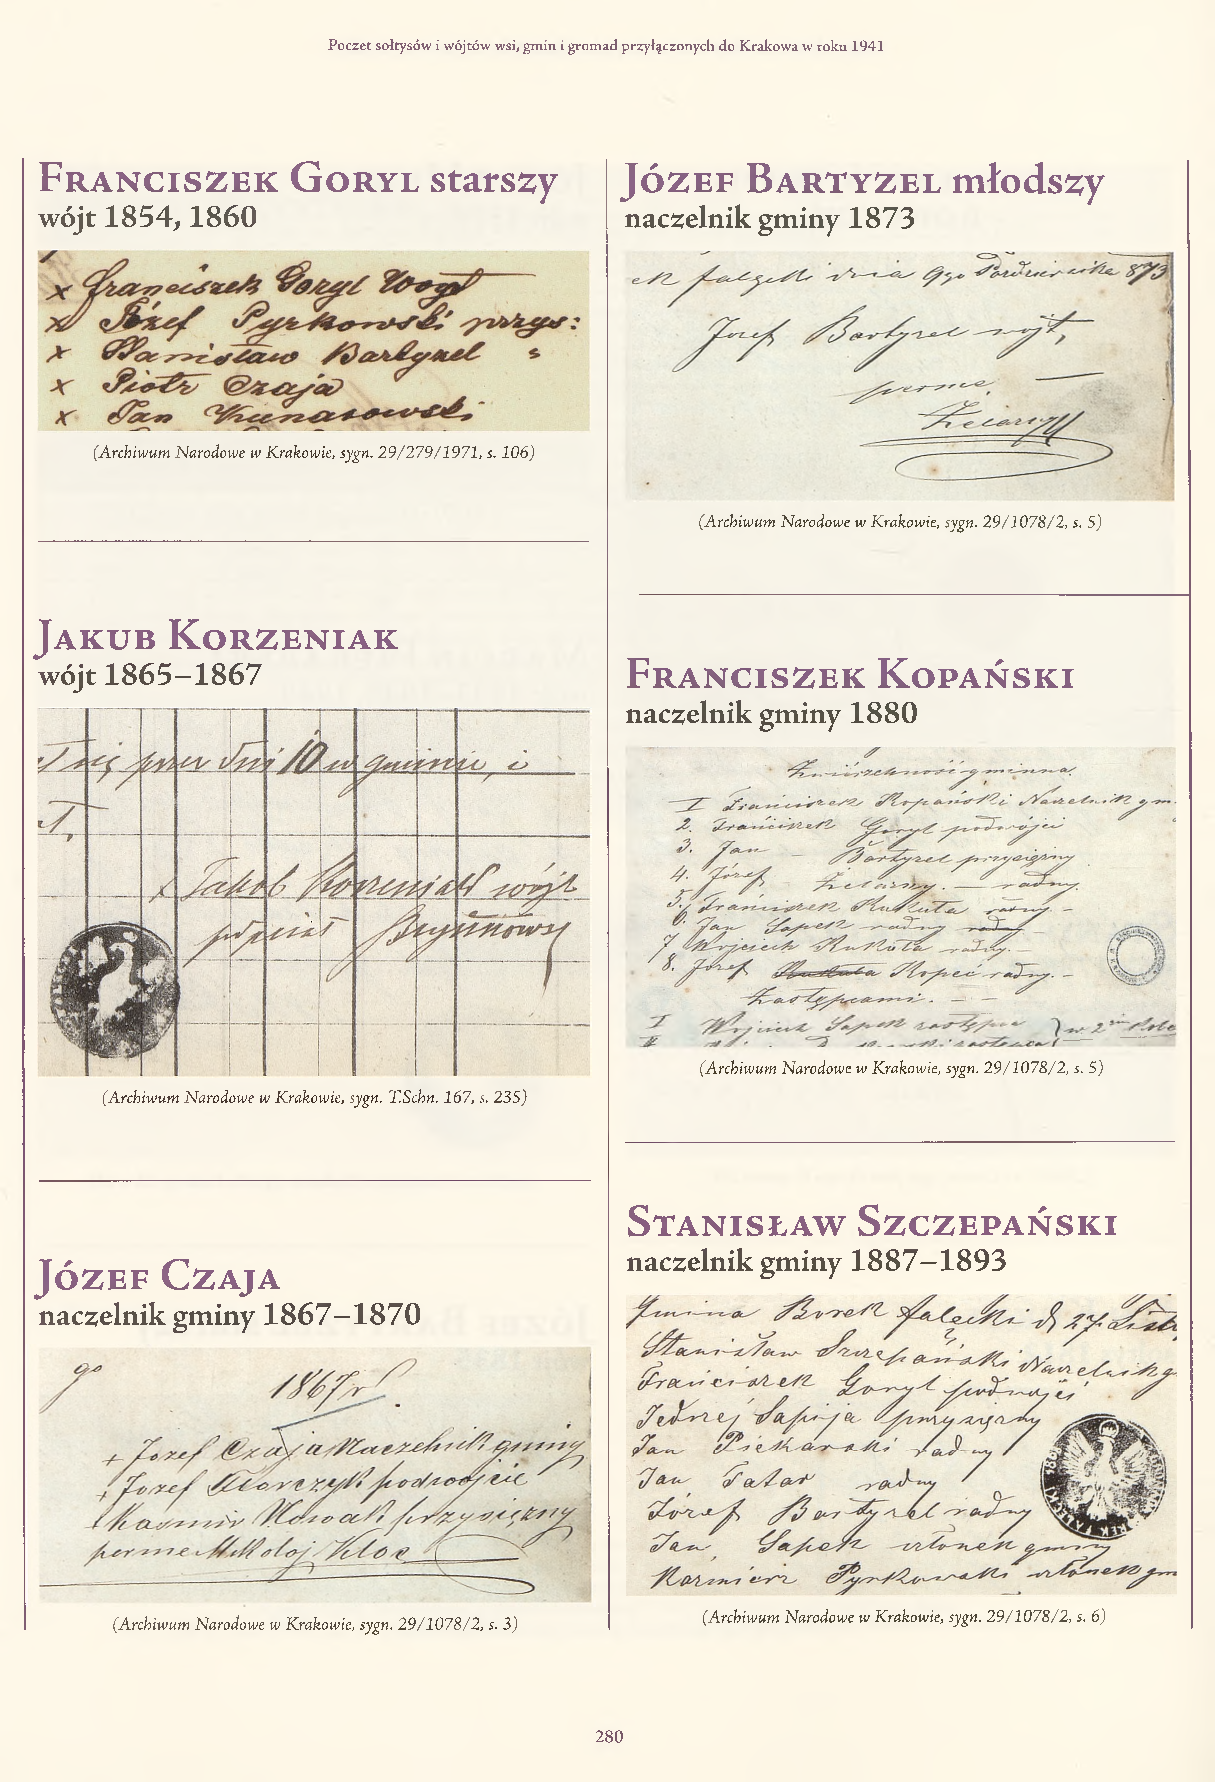 Poczet sołtysów i wójtów wsi, gmin i gromad przyłączonych do Krakowa w roku 1941
Franciszek Goryl starszy
wójt 1854, 1860
x Franciszek Goryl Woyt
x Józef Pyrkowski przys:
x Stanisław Bartyzel "
x Piotr Czaja
x Jan Kunasowski
(Archiwum Narodowe w Krakowie, sygn. 29/279/1971, s. 106)
Jakub Korzeniak
wójt 1865–1867
się przez dni 10 w gminie, i
x Jakob Korzeniak wójt
podpisał
(Archiwum Narodowe w Krakowie, sygn. T.Schn. 167, s. 235)
Józef Czaja
naczelnik gminy 1867–1870
go 1867 r
+ Jozef Czaja Naczelnik gminy
+ Jozef Klarczyk podwojcie
+ Kazmir Nowak przysięzny
perme Mikołaj Kloc
(Archiwum Narodowe w Krakowie, sygn. 29/1078/2, s. 3)
Józef Bartyzel młodszy
naczelnik gminy 1873
ek falęcki dnia 9go Października 873
Jozef Bartyzel wójt,
perme
Żelazny
(Archiwum Narodowe w Krakowie, sygn. 29/1078/2, s. 5)
Franciszek Kopański
naczelnik gminy 1880
Zwierzchność gminna.
I Franciszek Kopański Naczelnik gm.
2. Franciszek Goryl podwójci
3. Jan – Bartyzel przysięzny
4. Józef Żelazny. — radny.
5. Franciszek Kukuła radny. –
6. Jan Sapek radny radny –
7 Wojciech Kukuła radny. –
8. Jozef Kukuła Kopeć radny. –
Zastępcami. – –
I Wojciech Sapek zastępca } w 2im Kole
II zastępca
(Archiwum Narodowe w Krakowie, sygn. 29/1078/2, s. 5)
Stanisław Szczepański
naczelnik gminy 1887–1893
Gmina Borek falęcki d 27. Listo
Stanisław Szczepański Naczelnik g
Franciszek Goryl podwojci
Jędrzej Sapija przysięzny
Jan Piekarski radny
Jan Tatar radny
Józef Bartyzel radny
Jan Sapek członek gminy
Kazmierz Pyrkowski członek gm
(Archiwum Narodowe w Krakowie, sygn. 29/1078/2, s. 6)
280